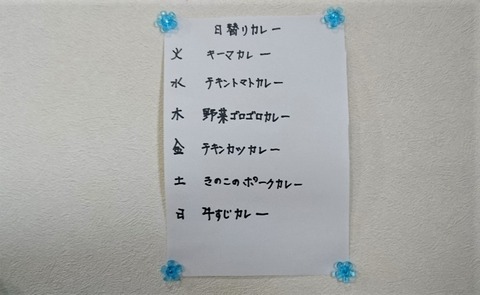 日替りカレー
火 キーマカレー
水 チキントマトカレー
木 野菜ゴロゴロカレー
金 チキンカツカレー
土 きのこのポークカレー
日 牛すじカレー